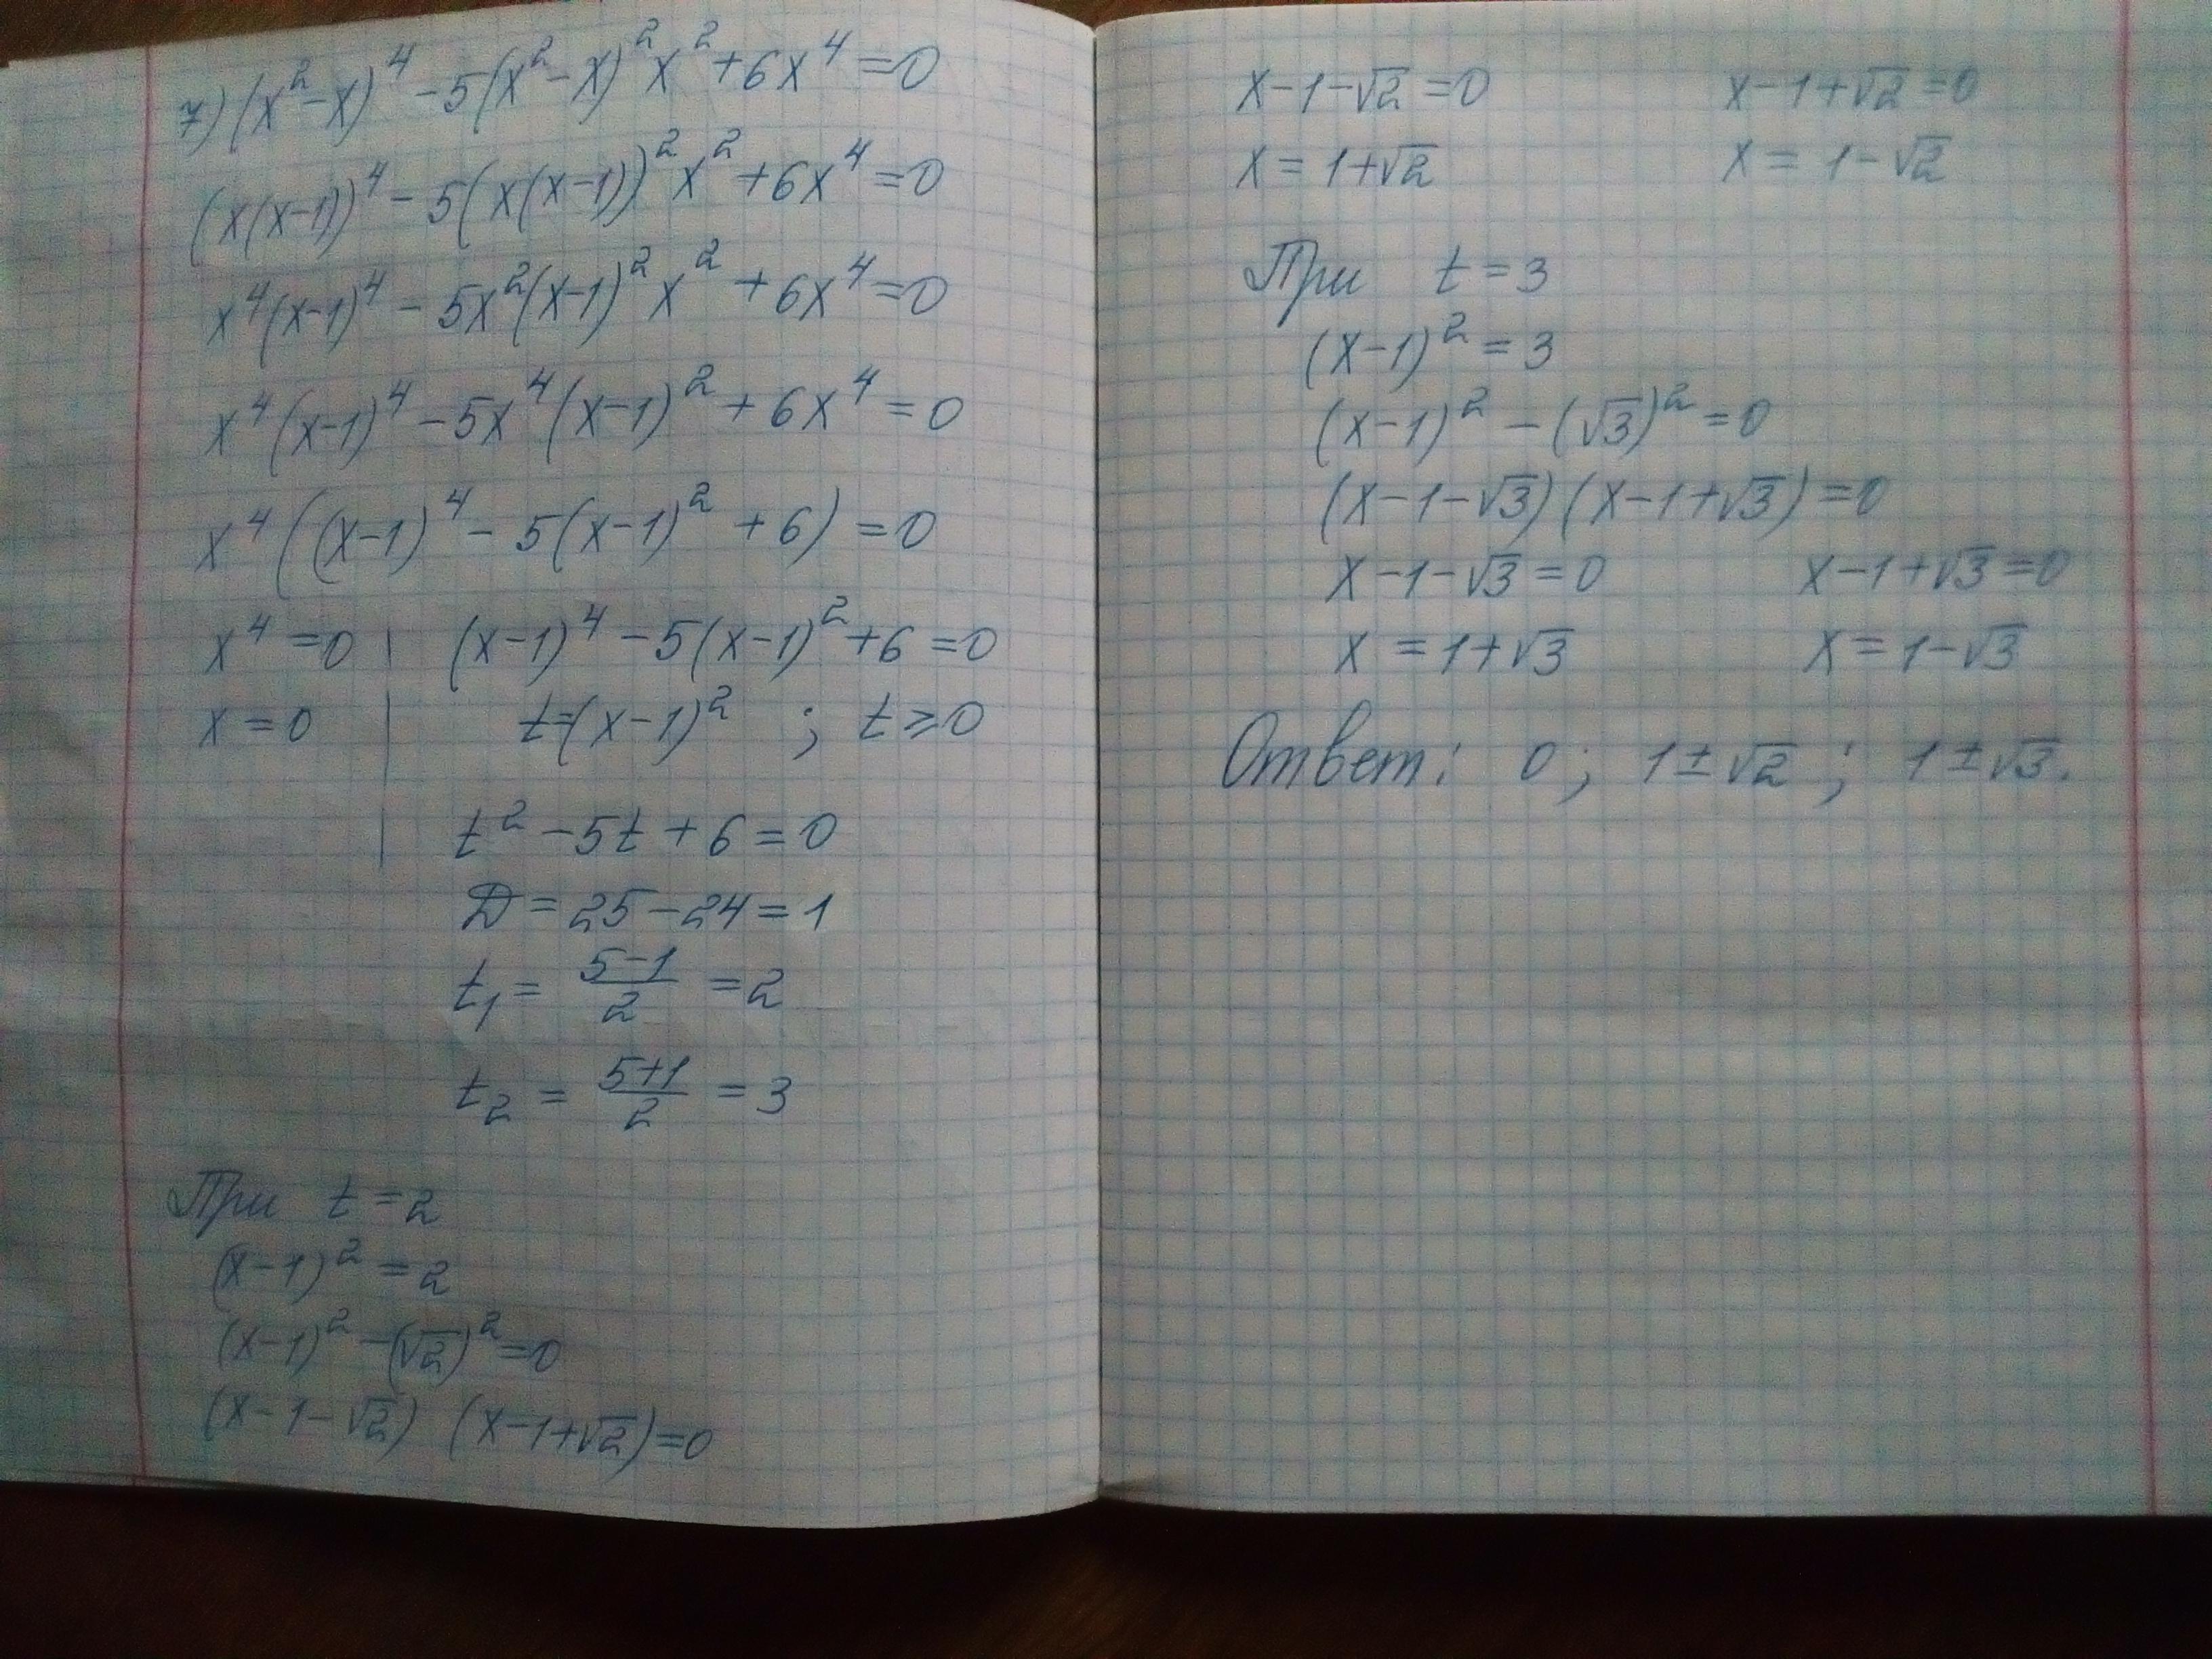 7) (x²-x)⁴ -5(x²-x)²x²+6x⁴=0
(x(x-1))⁴ - 5(x(x-1))²x²+6x⁴=0
x⁴(x-1)⁴ - 5x²(x-1)²x² + 6x⁴=0
x⁴(x-1)⁴ - 5x⁴(x-1)² + 6x⁴ = 0
x⁴((x-1)⁴ - 5(x-1)² + 6) = 0
x⁴ = 0 | (x-1)⁴ - 5(x-1)² + 6 = 0
x = 0 | t=(x-1)² ; t ≥ 0
t² - 5t + 6 = 0
D = 25 - 24 = 1
t₁ = (5-1)/2 = 2
t₂ = (5+1)/2 = 3
При t = 2
(x-1)² = 2
(x-1)² - (√2)² = 0
(x-1-√2) (x-1+√2) = 0
x-1-√2 = 0 x-1+√2 = 0
x = 1+√2 x = 1-√2
При t = 3
(x-1)² = 3
(x-1)² - (√3)² = 0
(x-1-√3)(x-1+√3) = 0
x-1-√3 = 0 x-1+√3 = 0
x = 1+√3 x = 1-√3
Ответ: 0; 1±√2; 1±√3.